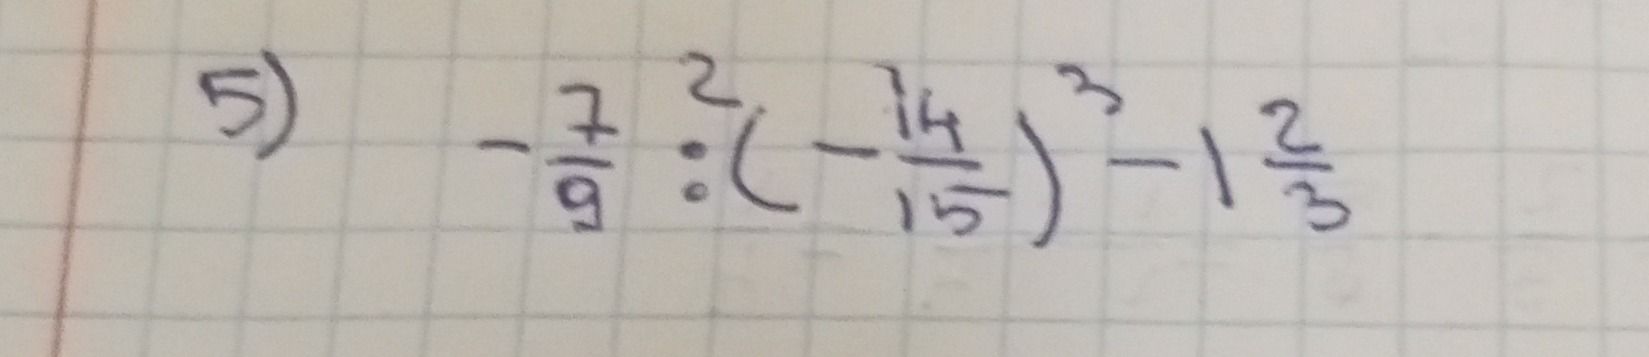 5) -7/9 :² (-14/15)³ - 1 2/3